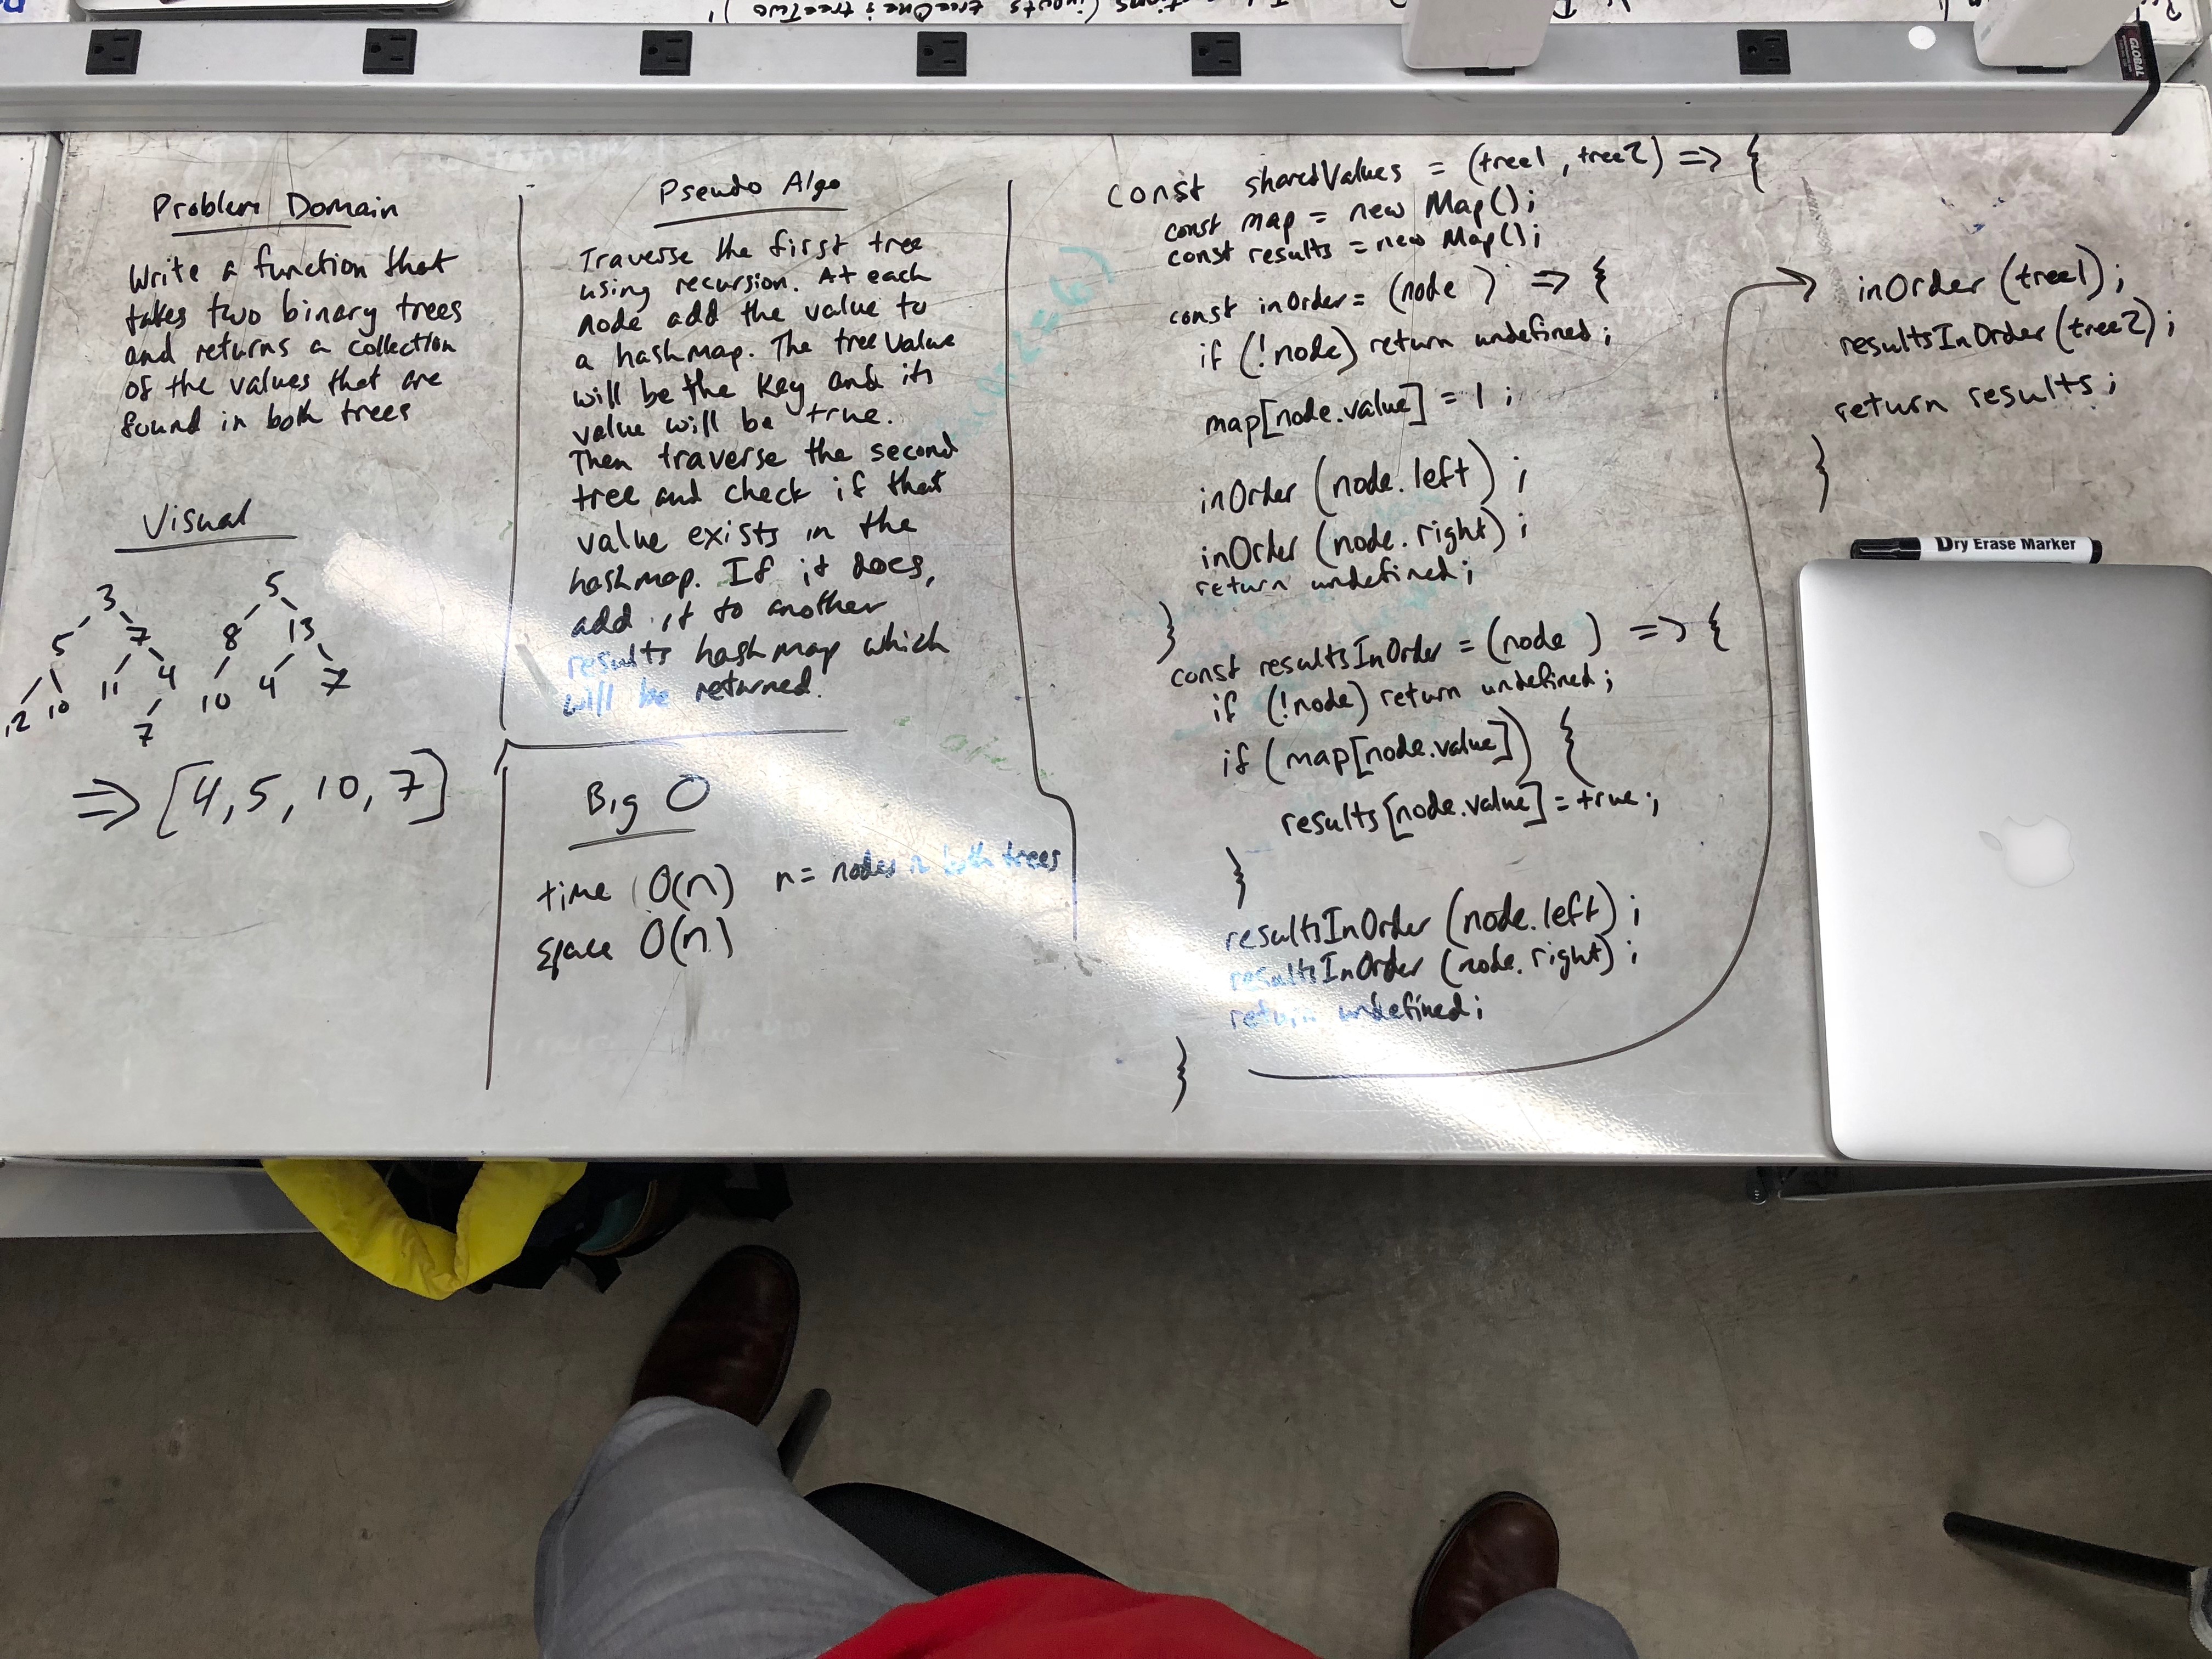 tions (inputs treeOne; treeTwo)
GLOBAL
Problem Domain
Write a function that
takes two binary trees
and returns a collection
of the values that are
found in both trees
Visual
3
5
5
7
8
13
12
10
11
4
10
4
7
7
=> [4, 5, 10, 7]
Pseudo Algo
Traverse the first tree
using recursion. At each
node add the value to
a hashmap. The tree value
will be the key and its
value will be true.
Then traverse the second
tree and check if that
value exists in the
hashmap. If it does,
add it to another
results hashmap which
will be returned.
Big O
time O(n) n = nodes in both trees
space O(n)
const sharedValues = (tree1, tree2) => {
const map = new Map();
const results = new Map();
const inOrder = (node) => {
if (!node) return undefined;
map[node.value] = 1;
inOrder (node.left);
inOrder (node.right);
return undefined;
}
const resultsInOrder = (node) => {
if (!node) return undefined;
if (map[node.value]) {
results[node.value] = true;
}
resultsInOrder (node.left);
resultsInOrder (node.right);
return undefined;
}
inOrder (tree1);
resultsInOrder (tree2);
return results;
}
Dry Erase Marker